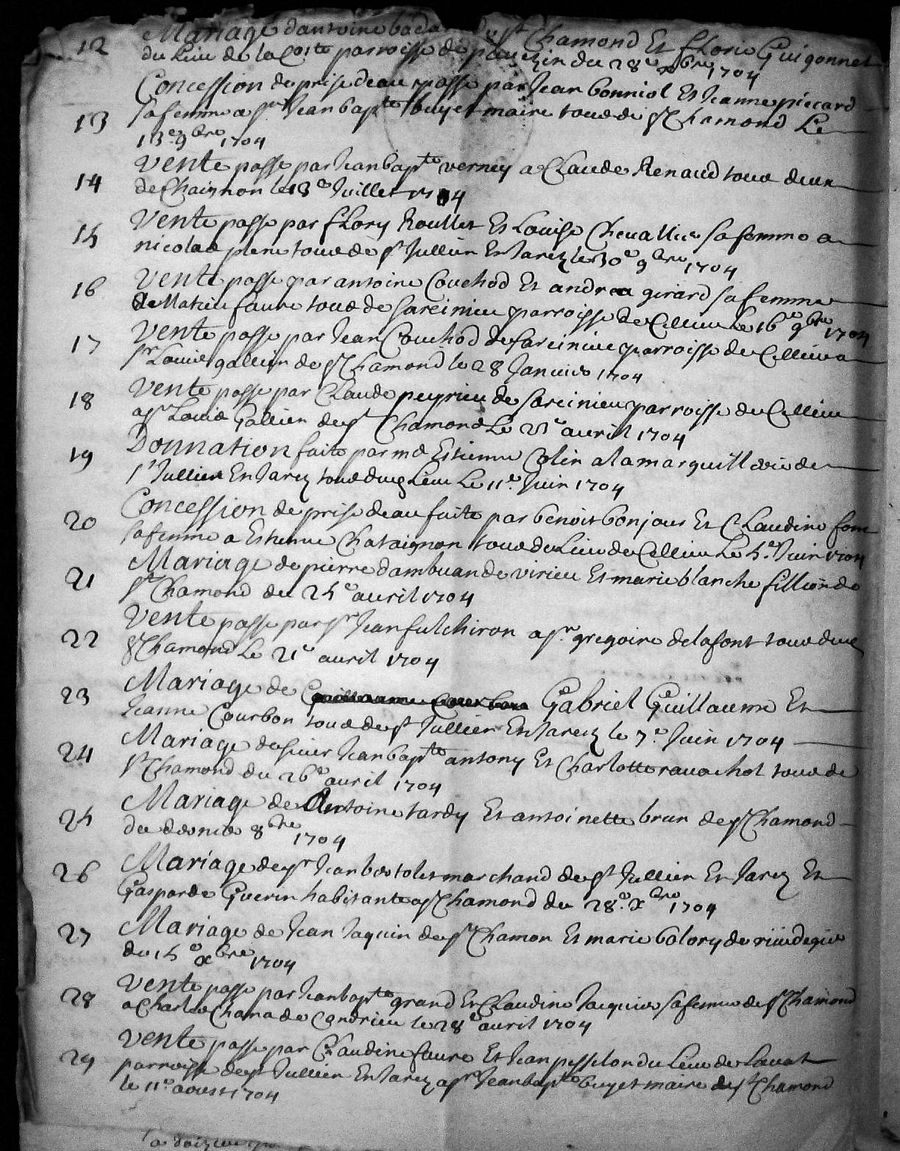 12 Mariage dantoine ba de st Chamond Et Florie Guigonnet
du Lieu de la Coste parroisse de pavezin du 28e xbre 1704
Concession de prise deau passe par Jean bonniol Et Jeanne piccard
13 sa femme a sr Jean bapte buyet maire tous de st Chamond Le
13e 9bre 1704
14 Vente passe par Jean bapte verney a Claude Renaud tous deux
de Chaignon le 13e Juillet 1704
15 Vente passe par flory Roullet Et Louise Chevallier sa femme a
nicolas tous de st Jullien En Jarez le 30e 9bre 1704
16 Vente passe par antoine Couchod Et andrea girard sa femme
de Matieu faure tous de Sarcinieu parroisse de Cellieu Le 16e 9bre 1704
17 Vente passe par Jean Couchod de Sarcinieu parroisse de Cellieu a
sr Louis gallien de st Chamond le 28 Janvier 1704
18 Vente passe par Claude peyrieu de Sarcinieu parroisse de Cellieu
a sr Louis Gallien de st Chamond Le 21e avril 1704
19 Donnation faite par me Estienne Colin a la marguillerie de
st Jullien En Jarez tous dud Lieu Le 11e Juin 1704
20 Concession de prise deau faite par benoit bonjour Et Claudine font
sa femme a Estienne Chataignon tous du Lieu de Cellieu Le 5e Juin 1704
21 Mariage de pierre dambuan de virieu Et marie blanche fillion de
st Chamond du 25e avril 1704
22 Vente passe par sr Jean fulchiron a sr gregoire delafont tous deux
st Chamond Le 21e avril 1704
23 Mariage de Gabriel Guillaume Et
Jeanne Courbon tous de st Jullien En Jarez le 7e Juin 1704
24 Mariage de sieur Jean bapte antony Et Charlotte ravachol tous de
st Chamond du 26e avril 1704
25 Mariage de Antoine tardy Et antoinette brun de st Chamond
du dernier 8bre 1704
26 Mariage de sr Jean bertolet marchand de st Jullien En Jarez Et
Gasparde Guerin habitante a st Chamond du 28e xbre 1704
27 Mariage de Jean Jaquin de st Chamon Et marie bolory de rivedegier
du 15e xbre 1704
28 Vente passe par Jean bapte grand Et Claudine Jaquier sa femme de st Chamond
a Charles Chama de Condrieu le 28e avril 1704
29 Vente passe par Claudine faure Et Jean pesselon du Lieu de Lavat
parroisse de st Jullien En Jarez a sr Jean bapte buyet maire de st Chamond
le 11e aoust 1704